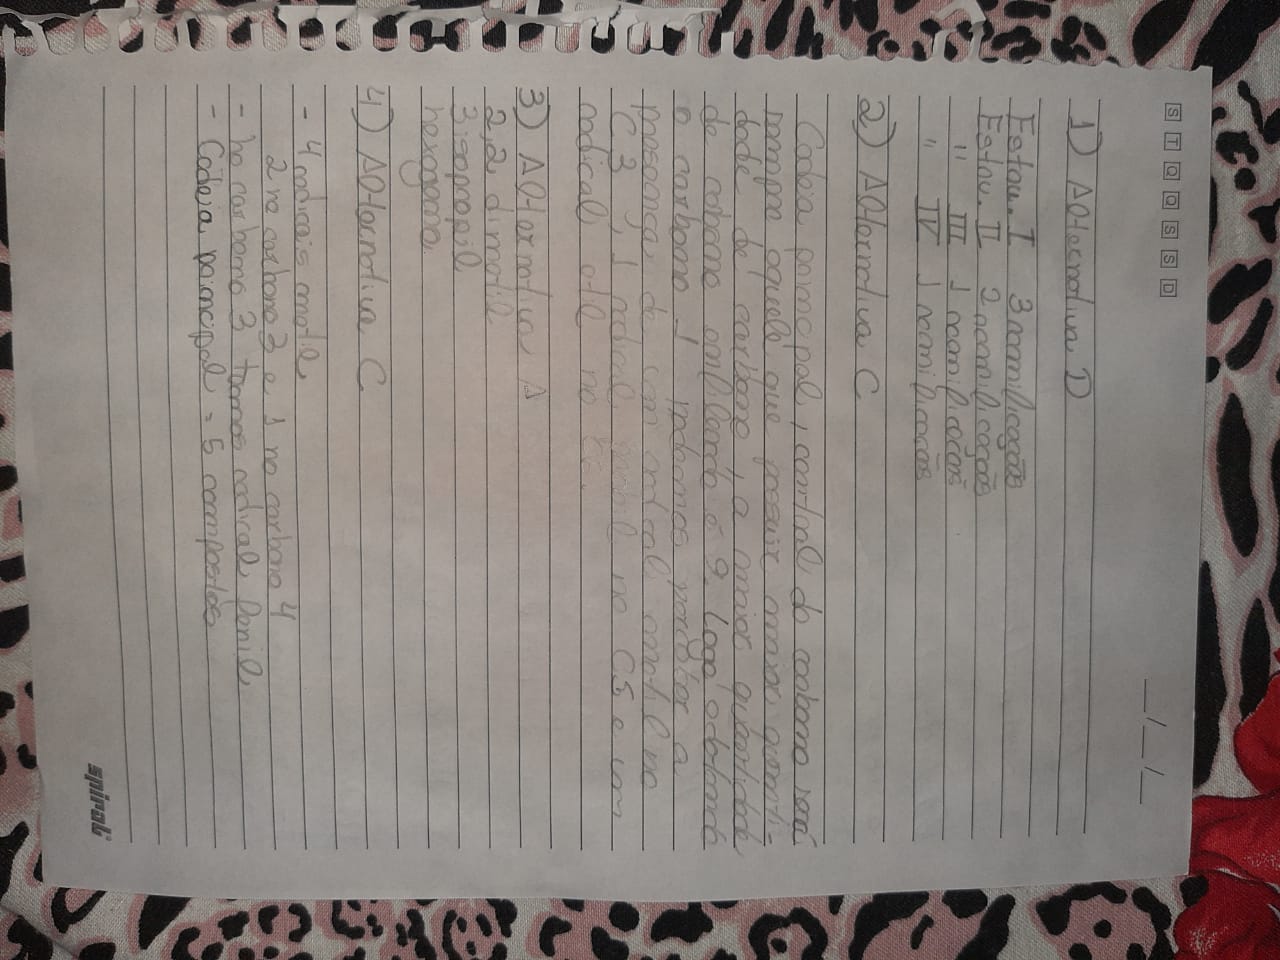 S T Q Q S S D
__/__/__
1) Alternativa D
Estru. I 3 ramificações
Estru. II 2 ramificações
" III 1 ramificações
" IV 1 ramificações
2) Alternativa C
Cadeia principal, central do carbono será
sempre aquele que possuir maior quanti-
dade de carbono, a maior quantidade
de carbono enfileirado é 9. Logo
o carbono 1 podemos perceber a
presença de um radical metil no
C 3, 1 radical no C5 e um
radical etil no
3) Alternativa A
2,2 dimetil
3 isopropil
hexagono
4) Alternativa C
- 4 radicais metil
2 no carbono 3 e 1 no carbono 4
- no carbono 3 temos radical fenil.
- Cadeia principal = 5 compostos
spiral